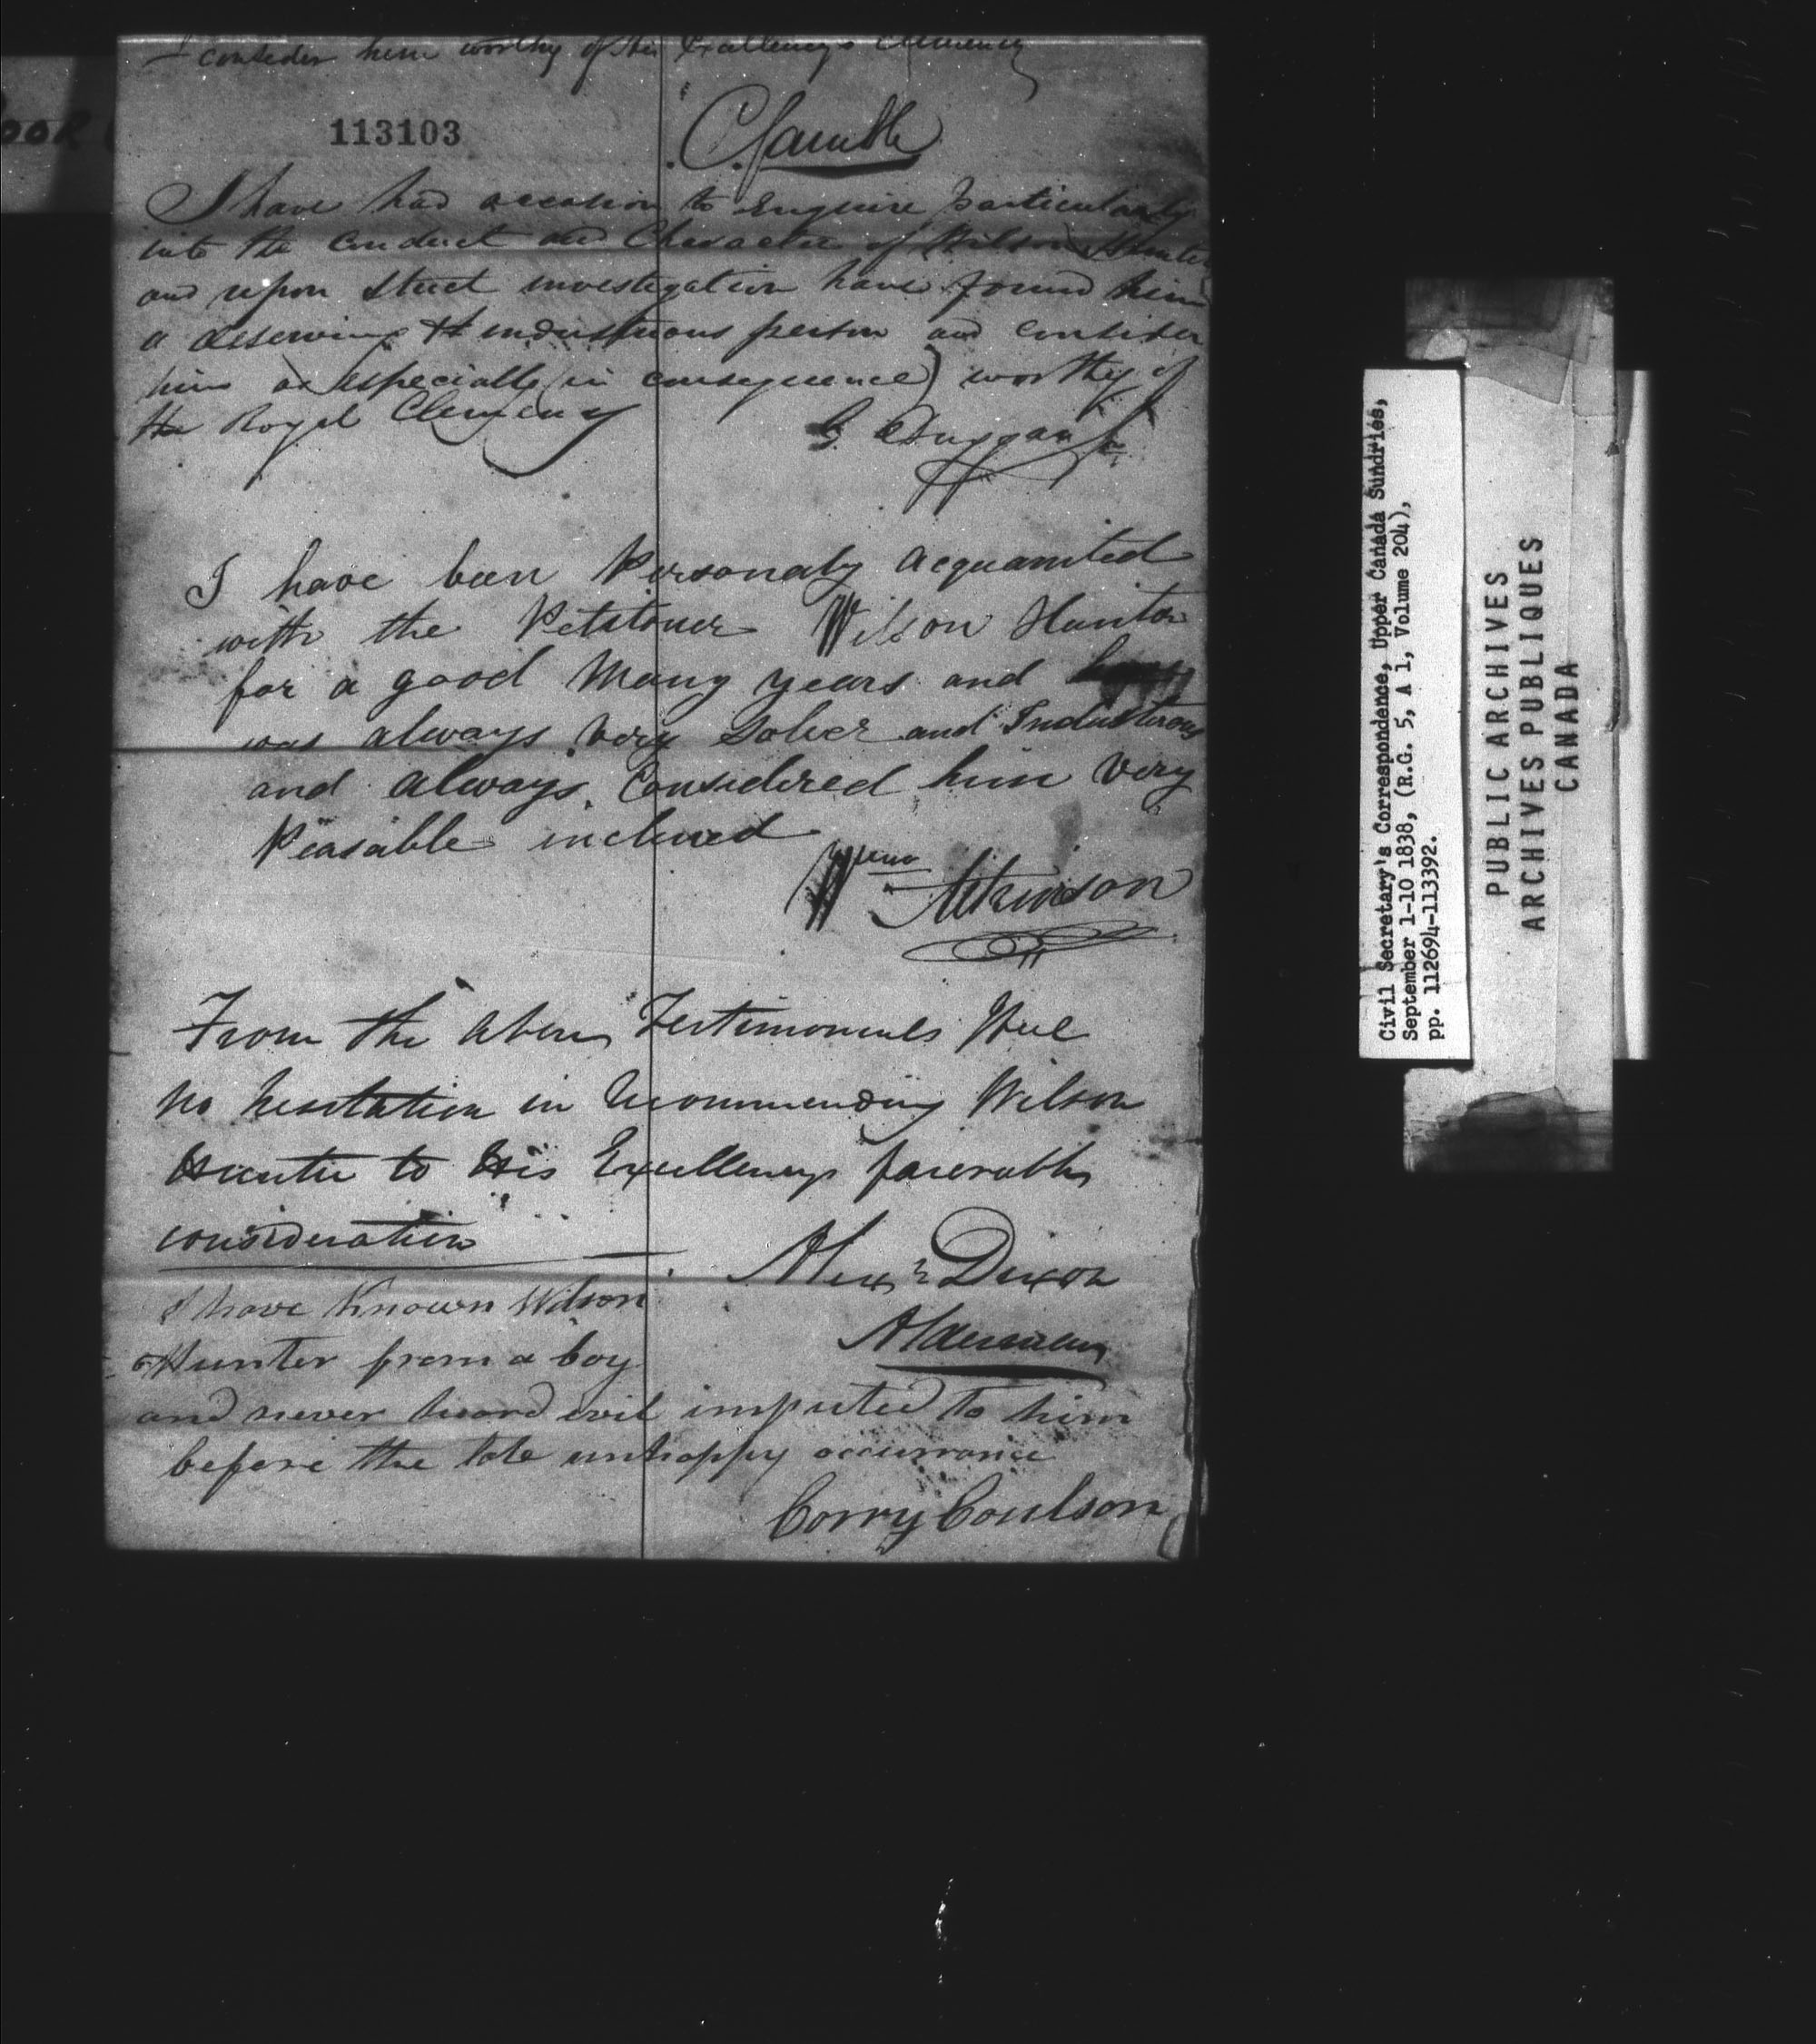 I consider him worthy of His Excellency's clemency
113103
C. Gamble
I have had occasion to Enquire particularly
into the Conduct and Character of Wilson Hunter
and upon strict investigation have found him
a deserving & industrious person and consider
him as especially (in consequence) worthy of
the Royal Clemency
G. Duggan Jr.
I have been Personaly acquanited
with the Petitoner Wilson Hunter
for a good Many years and
was always very Sober and Industrous
and always Considered him very
Peasable inclined
Wm Atkinson
From the above Testimonials I feel
no hesitation in recommending Wilson
Hunter to His Excellencys favorable
consideration
Alexr Dixon
Alderman
I have known Wilson
Hunter from a boy
and never heard evil imputed to him
before the late unhappy occurrance
Corry Coulson
Civil Secretary's Correspondence, Upper Canada Sundries,
September 1-10 1838, (R.G. 5, A 1, Volume 204),
pp. 112694-113392.
PUBLIC ARCHIVES
ARCHIVES PUBLIQUES
CANADA